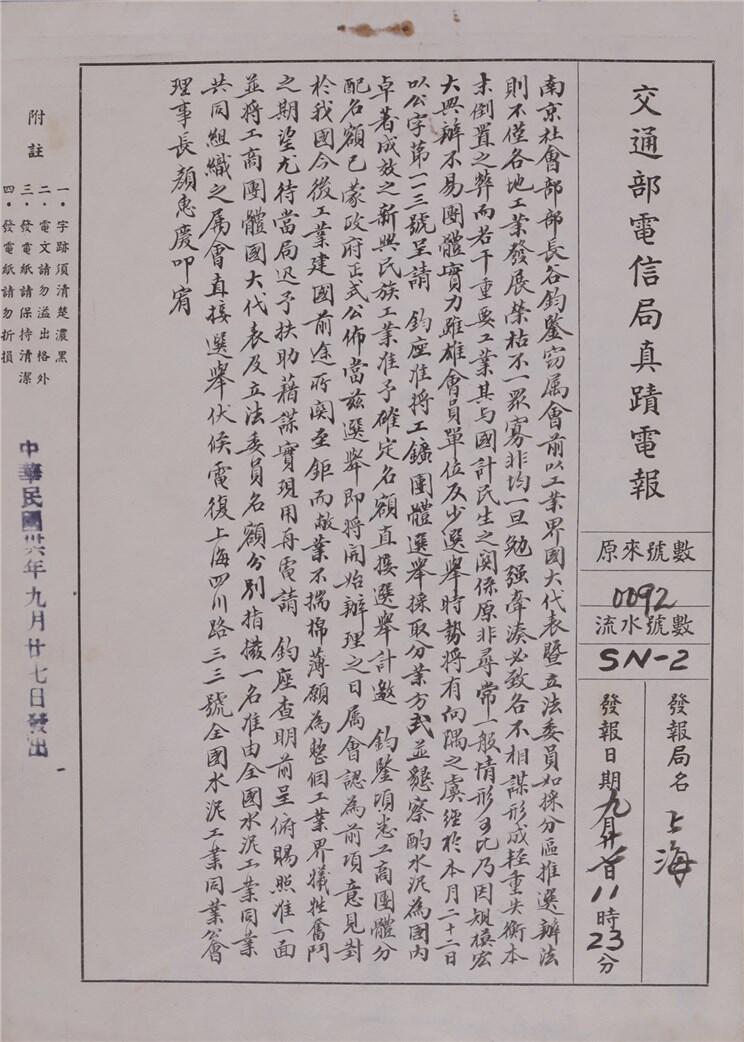 交通部電信局真蹟電報
原來號數
0092
流水號數
SN-2
發報局名 上海
發報日期 九月廿 日 11時23分
南京社會部部長谷鈞鑒竊屬會前以工業界國大代表暨立法委員如採分區推選辦法
則不僅各地工業發展榮枯不一眾寡非均一旦勉强牽湊必致各不相謀形成輕重失衡本
末倒置之弊而若干重要工業其与國計民生之関係原非尋常一般情形可比乃因規模宏
大興辦不易團體實力雖雄會員單位反少選舉時勢將有向隅之虞經於本月二十二日
以公字第一一三號呈請 鈞座准將工鑛團體選舉採取分業方式並懇察酌水泥為國内
卓著成效之新興民族工業准予確定名額直接選舉計邀 鈞鑒頃悉工商團體分
配名額已蒙政府正式公佈當兹選舉即將開始辦理之日属會認為前項意見對
於我國今後工業建國前途所関至鉅而敝業不揣棉薄願為整個工業界犧牲奮鬥
之期望尤待當局迅予扶助藉謀實現用再電請 鈞座查明前呈俯賜照准一面
並將工商團體國大代表及立法委員名額分別指撥一名准由全國水泥工業同業
共同組織之属會直接選舉伏候電復上海四川路三三號全國水泥工業同業公會
理事長顏惠慶叩宥
附註
一・字跡須清楚濃黑
二・電文請勿溢出格外
三・發電紙請保持清潔
四・發電紙請勿折損
中華民國卅六年九月廿七日發出